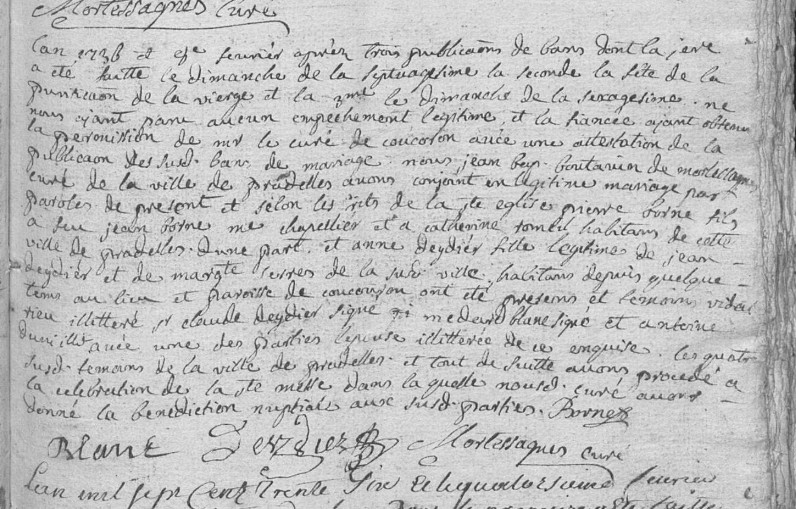 Mortessagnes Curé
L'an 1736 et 9e feuvrier apréz trois publicaons de bans dont la 1ere
a été faitte le dimanche de la septuagesime la seconde la féte de la
purificaon de la vierge et la 3me le dimanche de la sexagesime. ne
nous ayant paru aucun empechement legitime, et la fiancée ayant obtenu
la permission de mr le curé de coucoron avec une attestation de la
publicaon des susd. bans de mariage. nous jean bap. boutavin de mortessagnes
curé de la ville de pradelles avons conjoint en legitime mariage par
paroles de present et selon les rits de la ste eglise pierre borne fils
a feu jean borne me chapellier et a catherine romeu habitans de cette
ville de pradelles. d'une part. et anne deydiér fille legitime de jean
deydiér et de margte serres de la susd ville, habitans depuis quelque
tems au lieu et paroisse de coucoron ont été presens et temoins vidal
rieu illitteré, sr claude deydier signé medard blanc signé et antoine
avec une des parties l'epouse illitterée de ce enquise. les quatre
susd. temoins de la ville de pradelles. et tout de suitte avons procedé a
la celebration de la ste messe dans laquelle nousd. curé avons
donné la benediction nuptiale aux susd. parties. Borne
Blanc Deydier Mortessagnes curé
L'an mil sept Cent Trente Six et le quatorsieme feuvrier